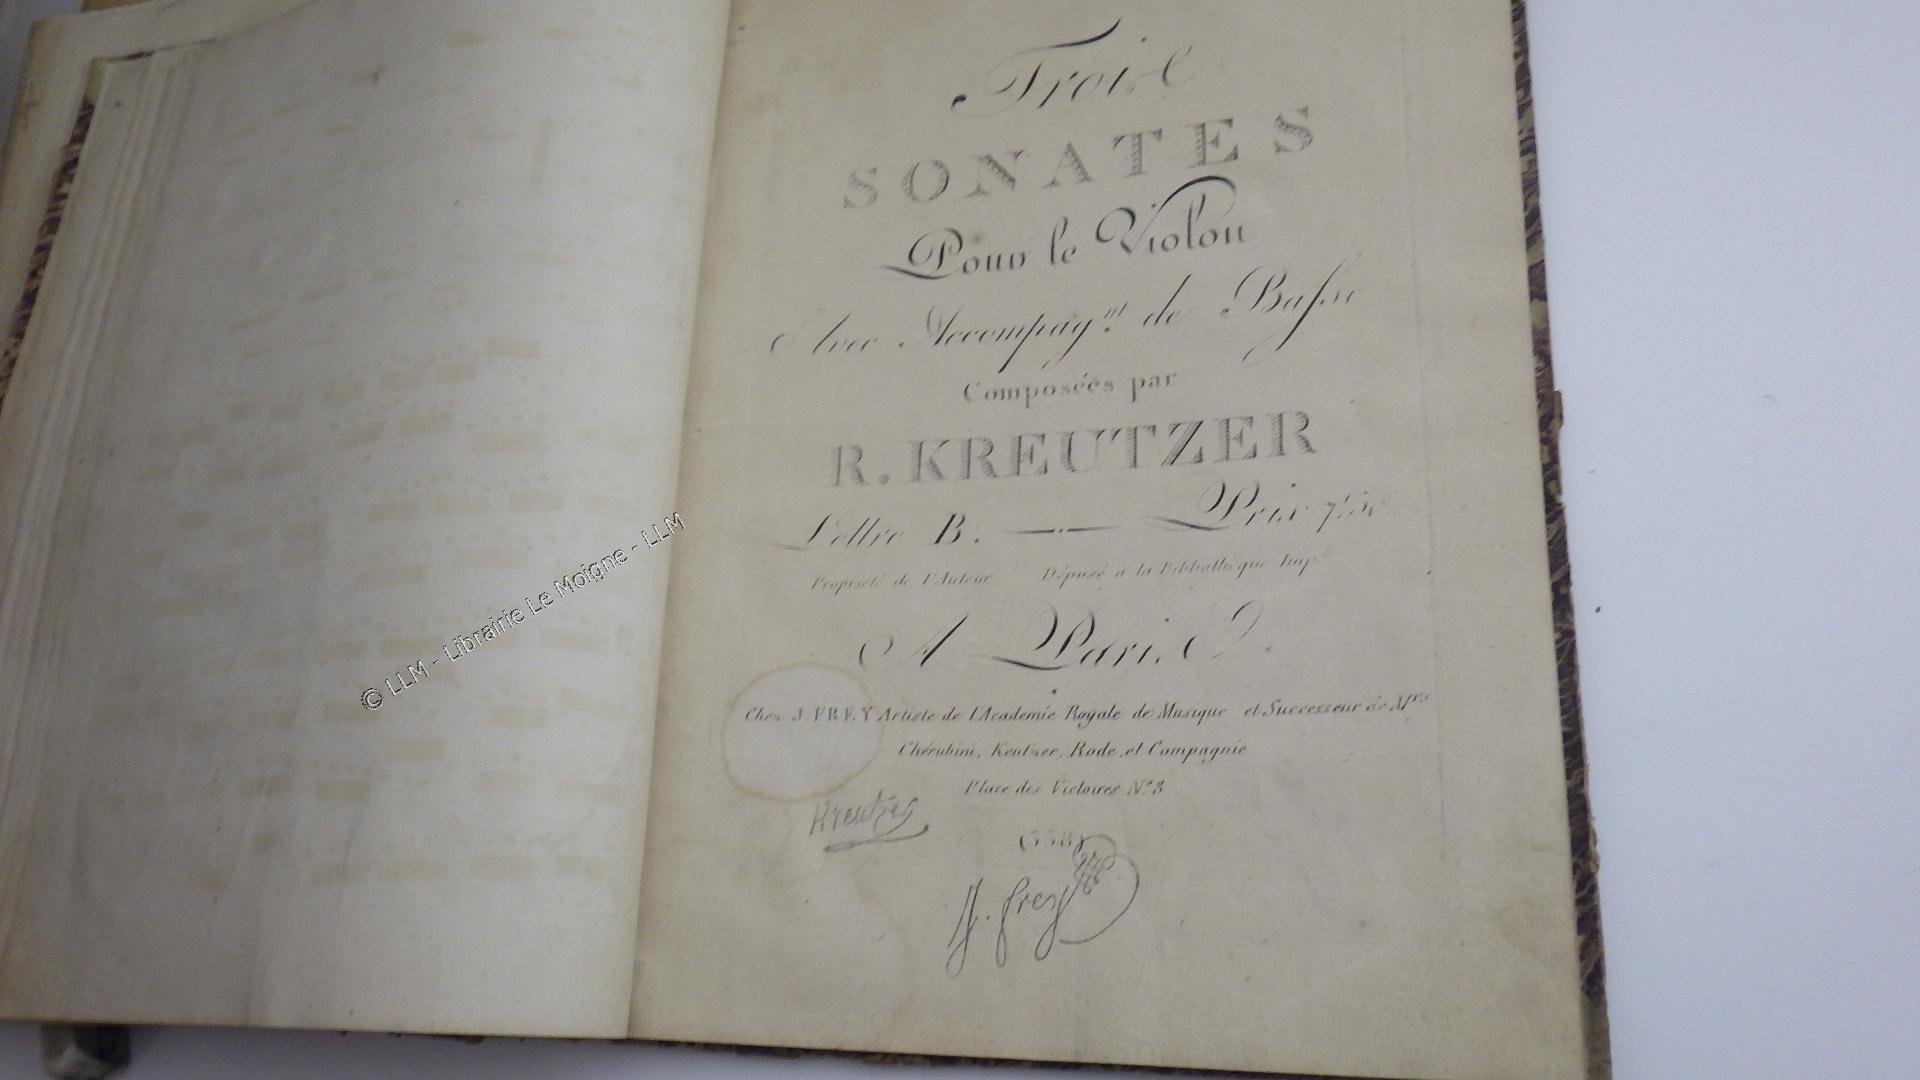 Trois
SONATES
Pour le Violon
Avec Accompagnt. de Basse
Composéés par
R. KREUTZER
Lettre B. Prix 7f 50
Proprieté de l'Auteur Déposé a la Bibliothèque Imple
A Paris
Chez J. FREY Artiste de l'Academie Royale de Musique et Successeur de Mrs
Chérubini, Keutzer, Rode, et Compagnie
Place des Victoires No. 8
Kreutzer
(338)
J. frey
© LLM - Librairie Le Moigne - LLM